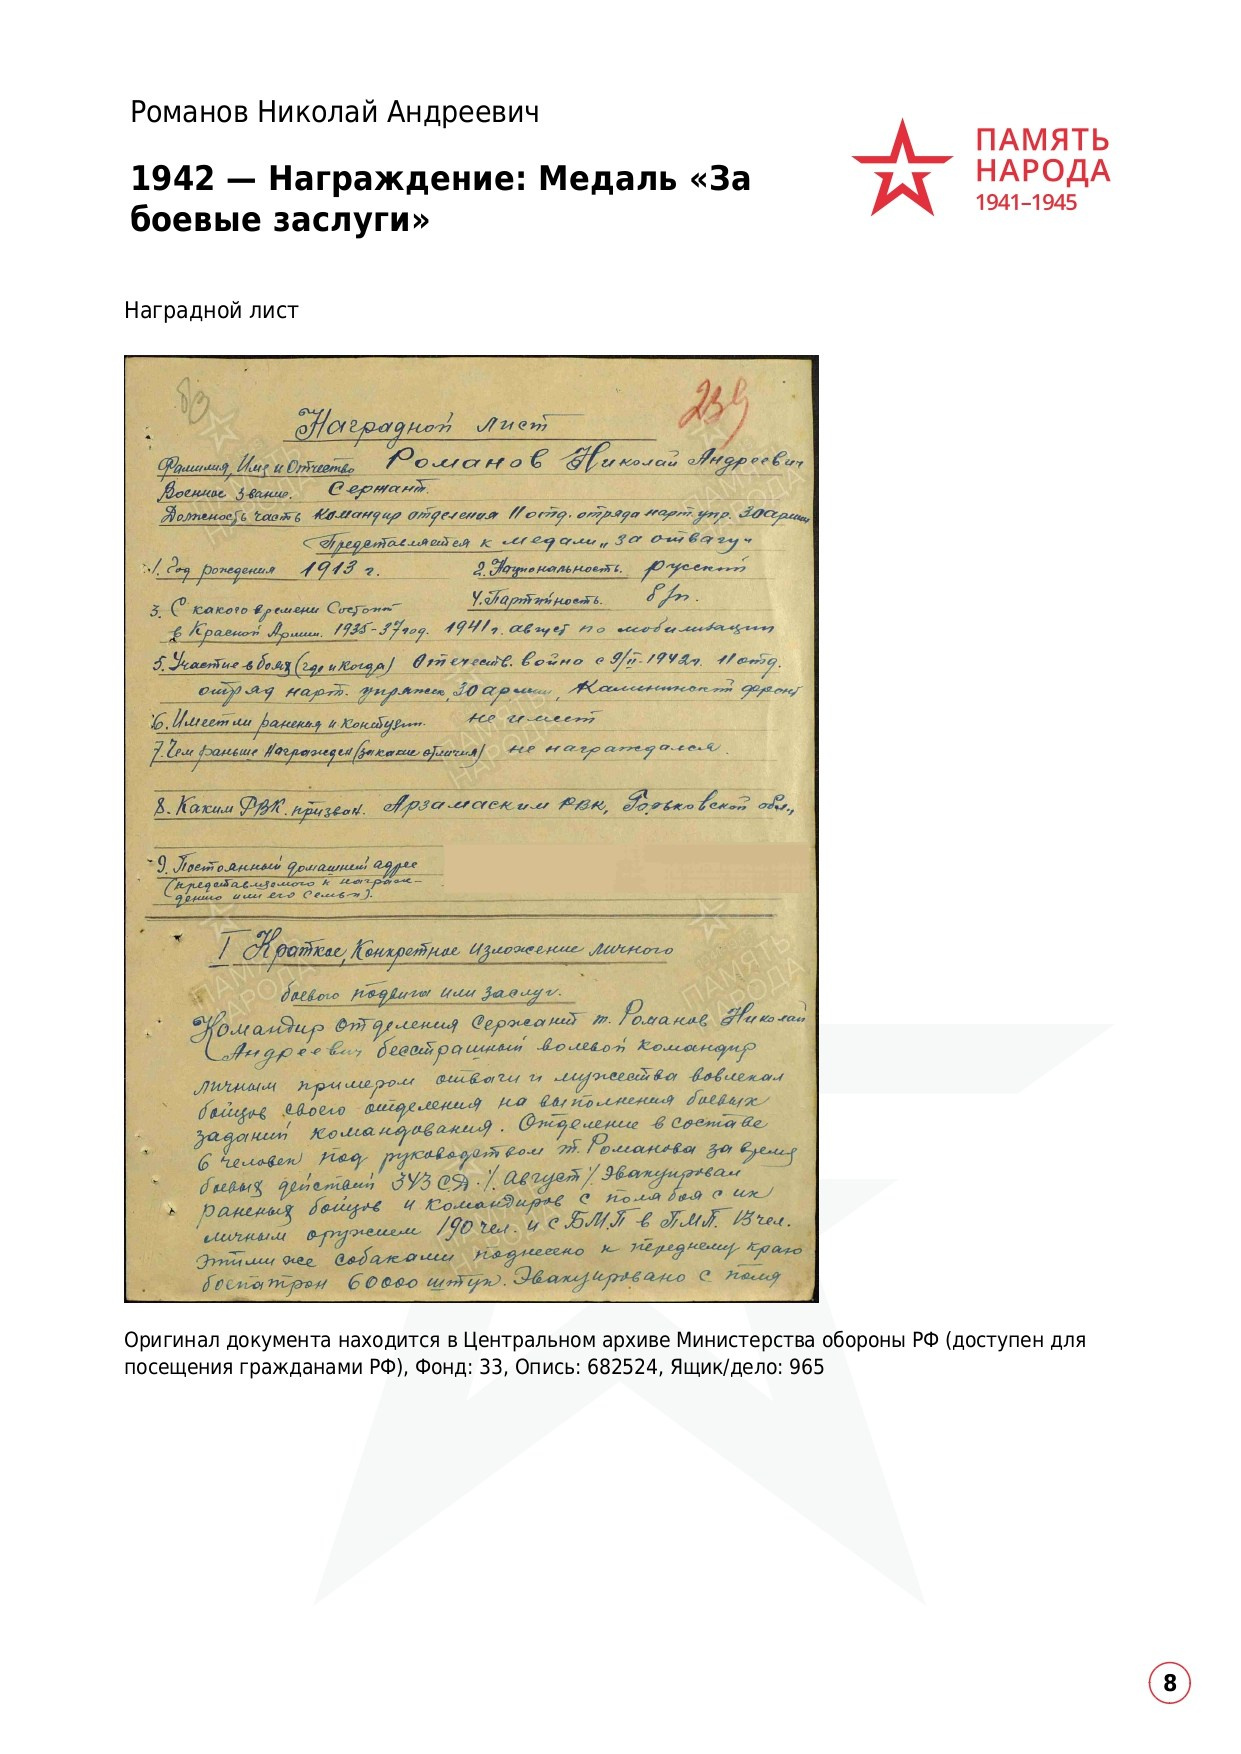 Романов Николай Андреевич
1942 — Награждение: Медаль «За
боевые заслуги»
ПАМЯТЬ
НАРОДА
1941–1945
Наградной лист
83
239
Наградной лист
Фамилия, Имя и Отчество Романов Николай Андреевич
Военное звание. Сержант.
Должность часть командир отделения 11 отд. отряда нарт. упр. 30 армии
Представляется к медали „за отвагу“
1. Год рождения 1913 г. 2. Национальность. русский
4. Партийность. б/п.
3. С какого времени Состоит
в Красной Армии. 1935-37 год. 1941 г. август по мобилизации
5. Участие в боях (где и когда) Отечеств. война с 9/II-1942г. 11 отд.
отряд нарт. упряжек, 30 армии, Калининский фронт
6. Имеет ли ранения и контузии. не имеет
7. Чем раньше награжден (за какие отличия) не награждался.
8. Каким РВК. призван. Арзамаским РВК, Горьковской обл.,
9. Постоянный домашний адрес
(представляемого к награж-
дению или его семьи).
I Краткое, Конкретное изложение личного
боевого подвига или заслуг.
Командир отделения Сержант т. Романов Николай
Андреевич бесстрашный волевой командир
личным примером отваги и мужества вовлекал
бойцов своего отделения на выполнения боевых
заданий командования. Отделение в составе
6 человек под руководством т. Романова за время
боевых действий 343 С.Д. /. август /. Эвакуировал
раненых бойцов и командиров с поля боя с их
личным оружием 190 чел. и с БМП в ПМП. 13 чел.
этими же собаками поднесено к переднему краю
боепатрон 60000 штук. Эвакуировано с поля
Оригинал документа находится в Центральном архиве Министерства обороны РФ (доступен для
посещения гражданами РФ), Фонд: 33, Опись: 682524, Ящик/дело: 965
8